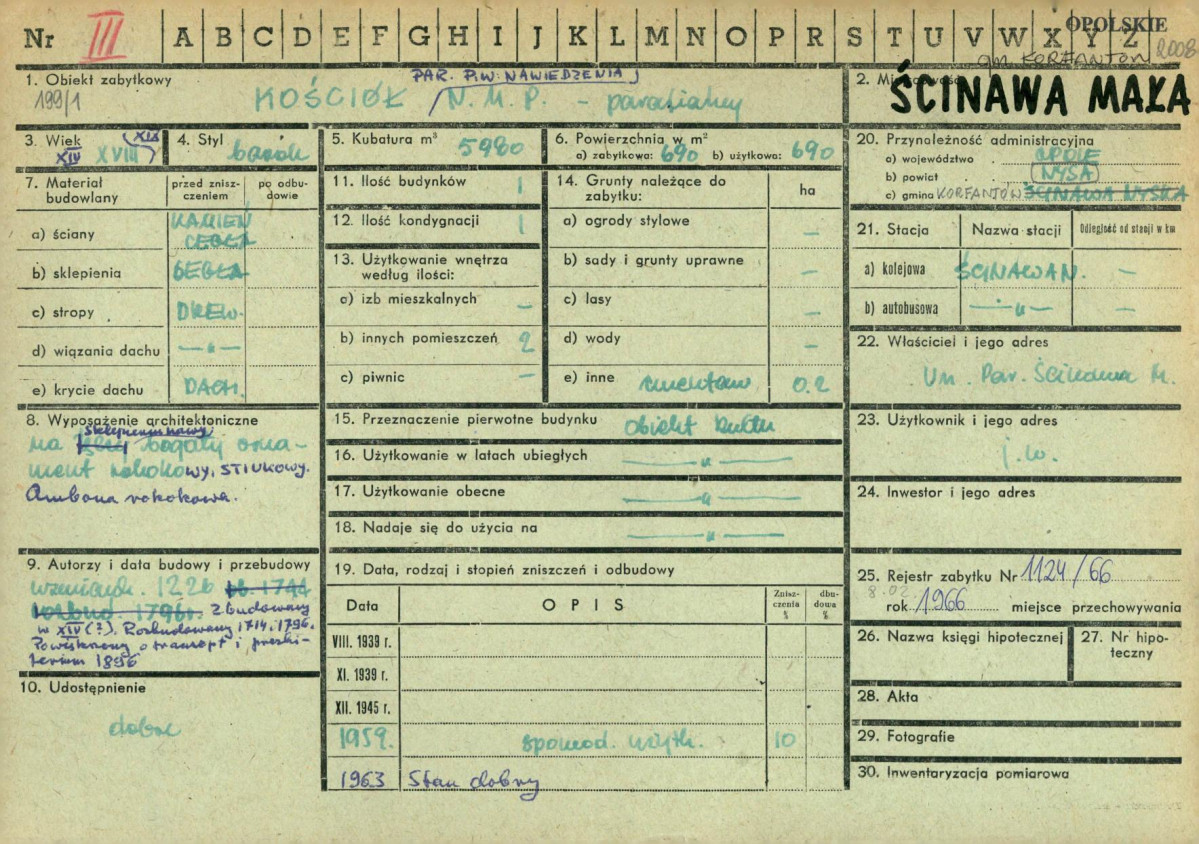 Nr III A B C D E F G H I J K L M N O P R S T U V W X Y Z
OPOLSKIE
gm. KORFANTÓW 2008
1. Obiekt zabytkowy
199/1
PAR. P.W. NAWIEDZENIA
KOŚCIÓŁ N. M. P. - parafialny
2. Miejscowość
ŚCINAWA MAŁA
3. Wiek
XIV XVIII (XIX)
4. Styl
barok
5. Kubatura m³ 5980
6. Powierzchnia w m²
a) zabytkowa: 690 b) użytkowa: 690
7. Materiał budowlany
przed zniszczeniem
po odbudowie
a) ściany KAMIEŃ CEGŁA
b) sklepienia CEGŁA
c) stropy DREW.
d) wiązania dachu —„—
e) krycie dachu DACH.
8. Wyposażenie architektoniczne
sklepieniu nawy
na bogaty orna-
ment rokokowy, STIUKOWY.
Ambona rokokowa.
9. Autorzy i data budowy i przebudowy
wzmiank. 1226 ok. 1744
rozbud. 1796r. Zbudowany
w XIV(?). Rozbudowany 1714, 1796.
Powiększony o transept i prezbi-
terium 1896
10. Udostępnienie
dobre
11. Ilość budynków 1
12. Ilość kondygnacji 1
13. Użytkowanie wnętrza
według ilości:
a) izb mieszkalnych —
b) innych pomieszczeń 2
c) piwnic —
14. Grunty należące do
zabytku:
ha
a) ogrody stylowe —
b) sady i grunty uprawne —
c) lasy —
d) wody —
e) inne cmentarz 0.2
15. Przeznaczenie pierwotne budynku obiekt kultu
16. Użytkowanie w latach ubiegłych —„—
17. Użytkowanie obecne —„—
18. Nadaje się do użycia na —„—
19. Data, rodzaj i stopień zniszczeń i odbudowy
Data
OPIS
Zniszczenia %
dbudowa %
VIII. 1939 r.
XI. 1939 r.
XII. 1945 r.
1959. spowod. użytk. 10
1963 Stan dobry
20. Przynależność administracyjna
a) województwo OPOLE
b) powiat NYSA
c) gmina KORFANTÓW ŚCINAWA NYSKA
21. Stacja
Nazwa stacji
Odległość od stacji w km
a) kolejowa ŚCINAWA N. —
b) autobusowa —„— —
22. Właściciel i jego adres
Par. Ścinawa M.
23. Użytkownik i jego adres
j.w.
24. Inwestor i jego adres
25. Rejestr zabytku Nr 1124/66
8.02.
rok 1966 miejsce przechowywania
26. Nazwa księgi hipotecznej
27. Nr hipo-
teczny
28. Akta
29. Fotografie
30. Inwentaryzacja pomiarowa